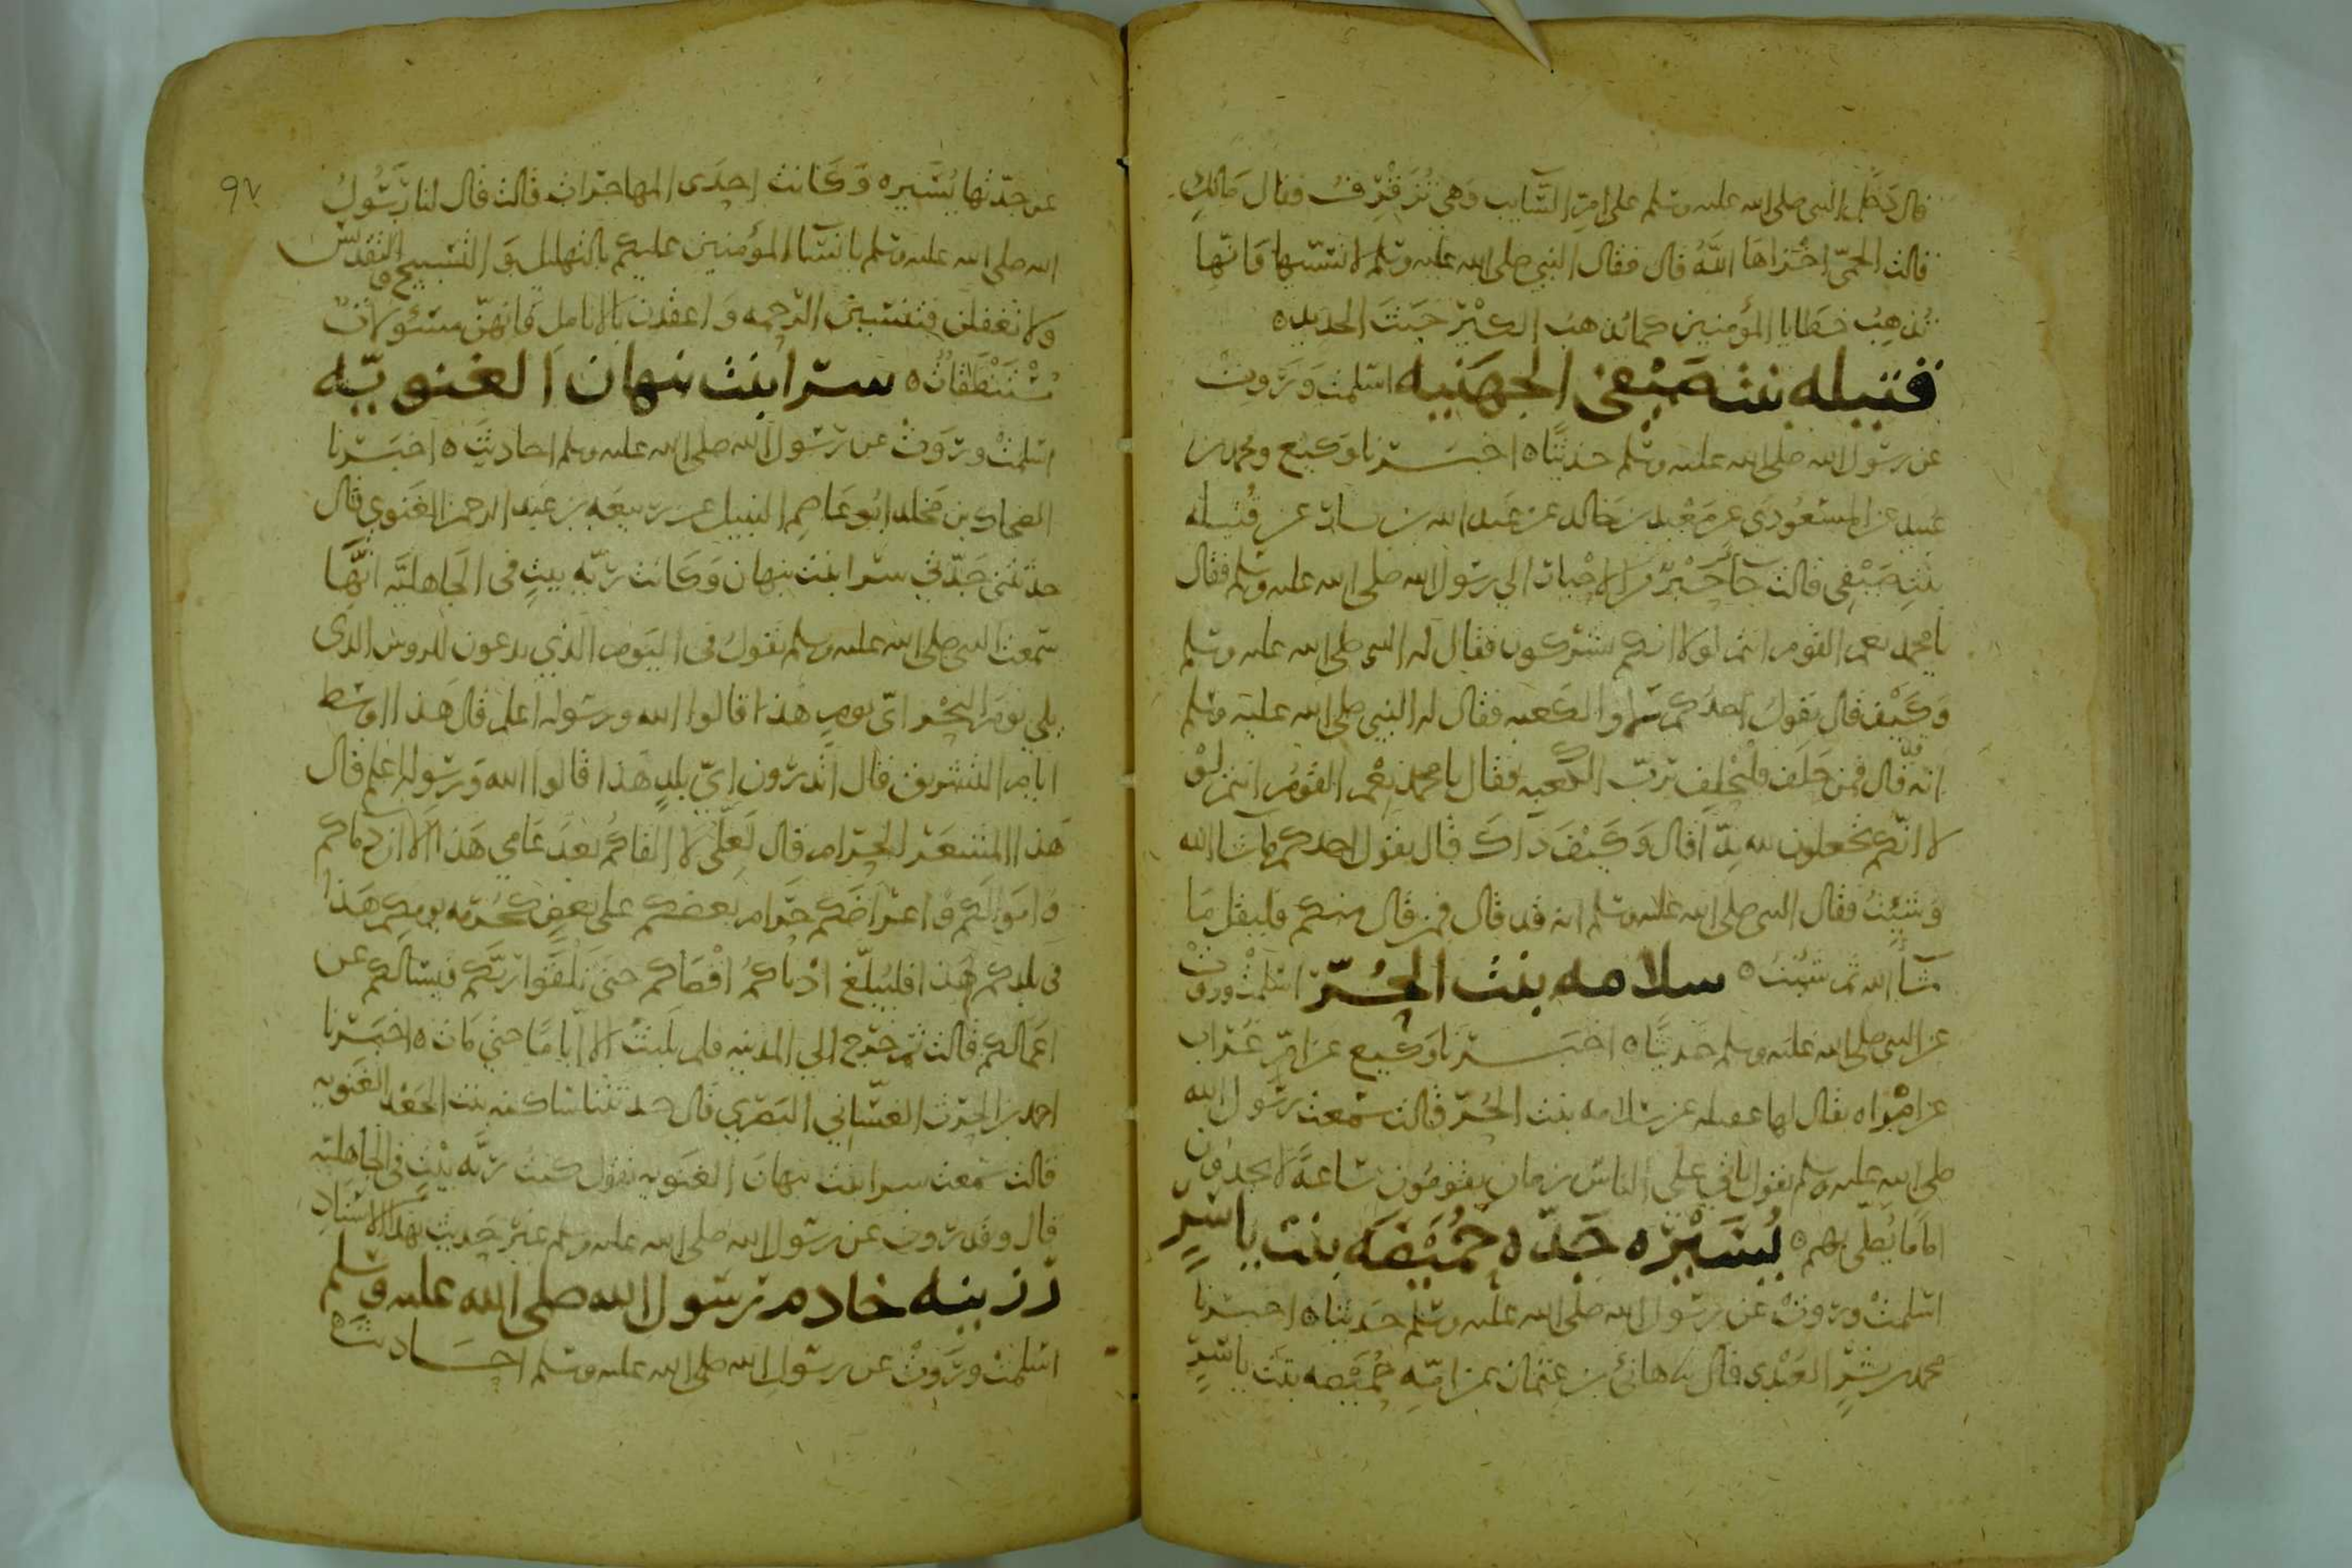 قال دخل النبي صلى الله عليه وسلم على ام السايب وهي تزفزف فقال مالك
قالت الحمى اخزاها الله قال فقال النبي صلى الله عليه وسلم لا تسبيها فانها
تذهب خطايا المؤمنين كما يذهب الكير خبث الحديد ه
قتيله بنت صيفي الجهنيه اسلمت وروت
عن رسول الله صلى الله عليه وسلم حديثا ه اخبرنا وكيع ومحمد بن
عبيد عن المسعودي عن معبد بن خالد عن عبد الله بن يسار عن قتيله
بنت صيفي قالت جا حبر من الاحبار الي رسول الله صلى الله عليه وسلم فقال
يا محمد نعم القوم انتم لولا انكم تشركون فقال له النبي صلى الله عليه وسلم
وكيف قال يقول احدكم لا والكعبه فقال له النبي صلى الله عليه وسلم
انه قد قال فمن حلف فليحلف برب الكعبه فقال يا محمد نعم القوم انتم لو
لا انكم تجعلون لله ندا قال وكيف ذاك قال يقول احدكم ما شا الله
وشيت فقال النبي صلى الله عليه وسلم انه قد قال فمن قال منكم فليقل ما
شا الله ثم شيت ه سلامه بنت الحر اسلمت وروت
عن النبي صلى الله عليه وسلم حديثا ه اخبرنا وكيع عن ام غراب
عن امراه يقال لها عقيله عن سلامه بنت الحر قالت سمعت رسول الله
صلى الله عليه وسلم يقول ياتي على الناس زمان يقومون ساعة لا يجدون
اماما يصلي بهم ه يسيره جده حميضه بنت ياسر
اسلمت وروت عن رسول الله صلى الله عليه وسلم حديثا ه اخبرنا
محمد بن بشر العبدي قال نا هانئ بن عثمان عن امه حميضه بنت ياسر
٩٧
عن جدتها يسيره وكانت احدى المهاجرات قالت قال لنا رسول
الله صلى الله عليه وسلم يا نسا المؤمنين عليكم بالتهليل والتسبيح والتقديس
ولا تغفلن فتنسين الرحمه واعقدن بالانامل فانهن مسئولات
مستنطقات ه سرا بنت نبهان الغنويه
اسلمت وروت عن رسول الله صلى الله عليه وسلم احاديث ه اخبرنا
الضحاك بن مخلد ابو عاصم النبيل عن ربيعه بن عبد الرحمن الغنوي قال
حدثتني جدتي سرا بنت نبهان وكانت ربه بيت في الجاهليه انها
سمعت النبي صلى الله عليه وسلم يقول في اليوم الذي يدعون الروس الذي
يلي يوم النحر اي يوم هذا قالوا الله ورسوله اعلم قال هذا اوسط
ايام التشريق قال اتدرون اي بلد هذا قالوا الله ورسوله اعلم قال
هذا المشعر الحرام قال لعلي لا القاكم بعد عامي هذا الا ان دماكم
واموالكم واعراضكم حرام بعضكم على بعض كحرمه يومكم هذا
في بلدكم هذا فليبلغ ادناكم اقصاكم حتى تلقوا ربكم فيسالكم عن
اعمالكم قالت ثم خرج الي المدينه فلم يلبث الا اياما حتي مات ه اخبرنا
احمد بن الحرث الغساني البصري قال حدثتنا ساكنه بنت الجعد الغنويه
قالت سمعت سرا بنت نبهان الغنويه تقول كنت ربه بيت في الجاهليه
قال وقد روت عن رسول الله صلى الله عليه وسلم غير حديث بهذا الاسناد
رزينه خادم رسول الله صلى الله عليه وسلم
اسلمت وروت عن رسول الله صلى الله عليه وسلم احاديث ه